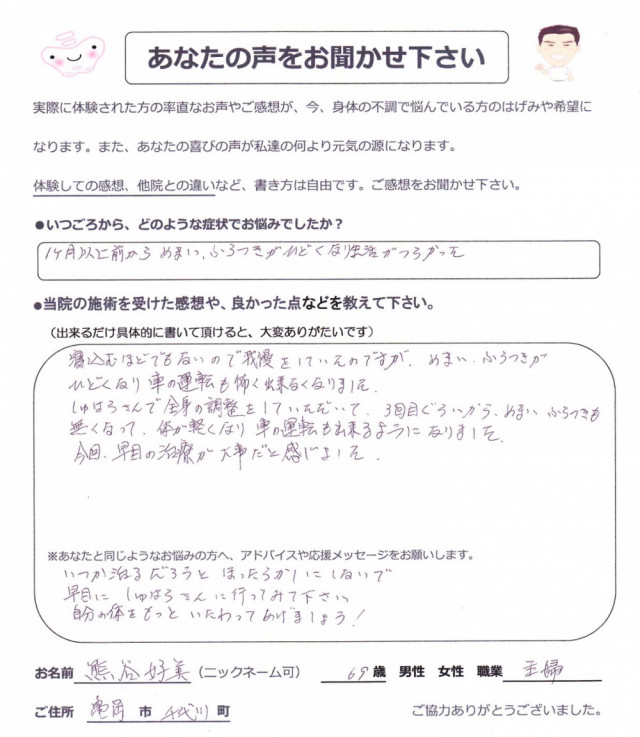 あなたの声をお聞かせ下さい
実際に体験された方の率直なお声やご感想が、今、身体の不調で悩んでいる方のはげみや希望に
なります。また、あなたの喜びの声が私達の何より元気の源になります。
体験しての感想、他院との違いなど、書き方は自由です。ご感想をお聞かせ下さい。
●いつごろから、どのような症状でお悩みでしたか？
1ヶ月以上前から めまい、ふらつきがひどくなり生活がつらかった
●当院の施術を受けた感想や、良かった点などを教えて下さい。
（出来るだけ具体的に書いて頂けると、大変ありがたいです）
寝込むほどでもないので我慢をしていたのですが、めまい、ふらつきが
ひどくなり 車の運転も怖く出来なくなりました。
しゅはらさんで全身の調整をしていただいて、3回目ぐらいから、めまい ふらつきも
無くなって、体が軽くなり 車の運転も出来るようになりました。
今回、早目の治療が大事だと感じました。
※あなたと同じようなお悩みの方へ、アドバイスや応援メッセージをお願いします。
いつか治るだろうと ほったらかしにしないで
早目に しゅはらさんに行ってみて下さい
自分の体をもっと いたわってあげましょう！
お名前 熊谷好美 （ニックネーム可） 69 歳 男性 女性 職業 主婦
ご住所 亀岡 市 千代川 町 ご協力ありがとうございました。